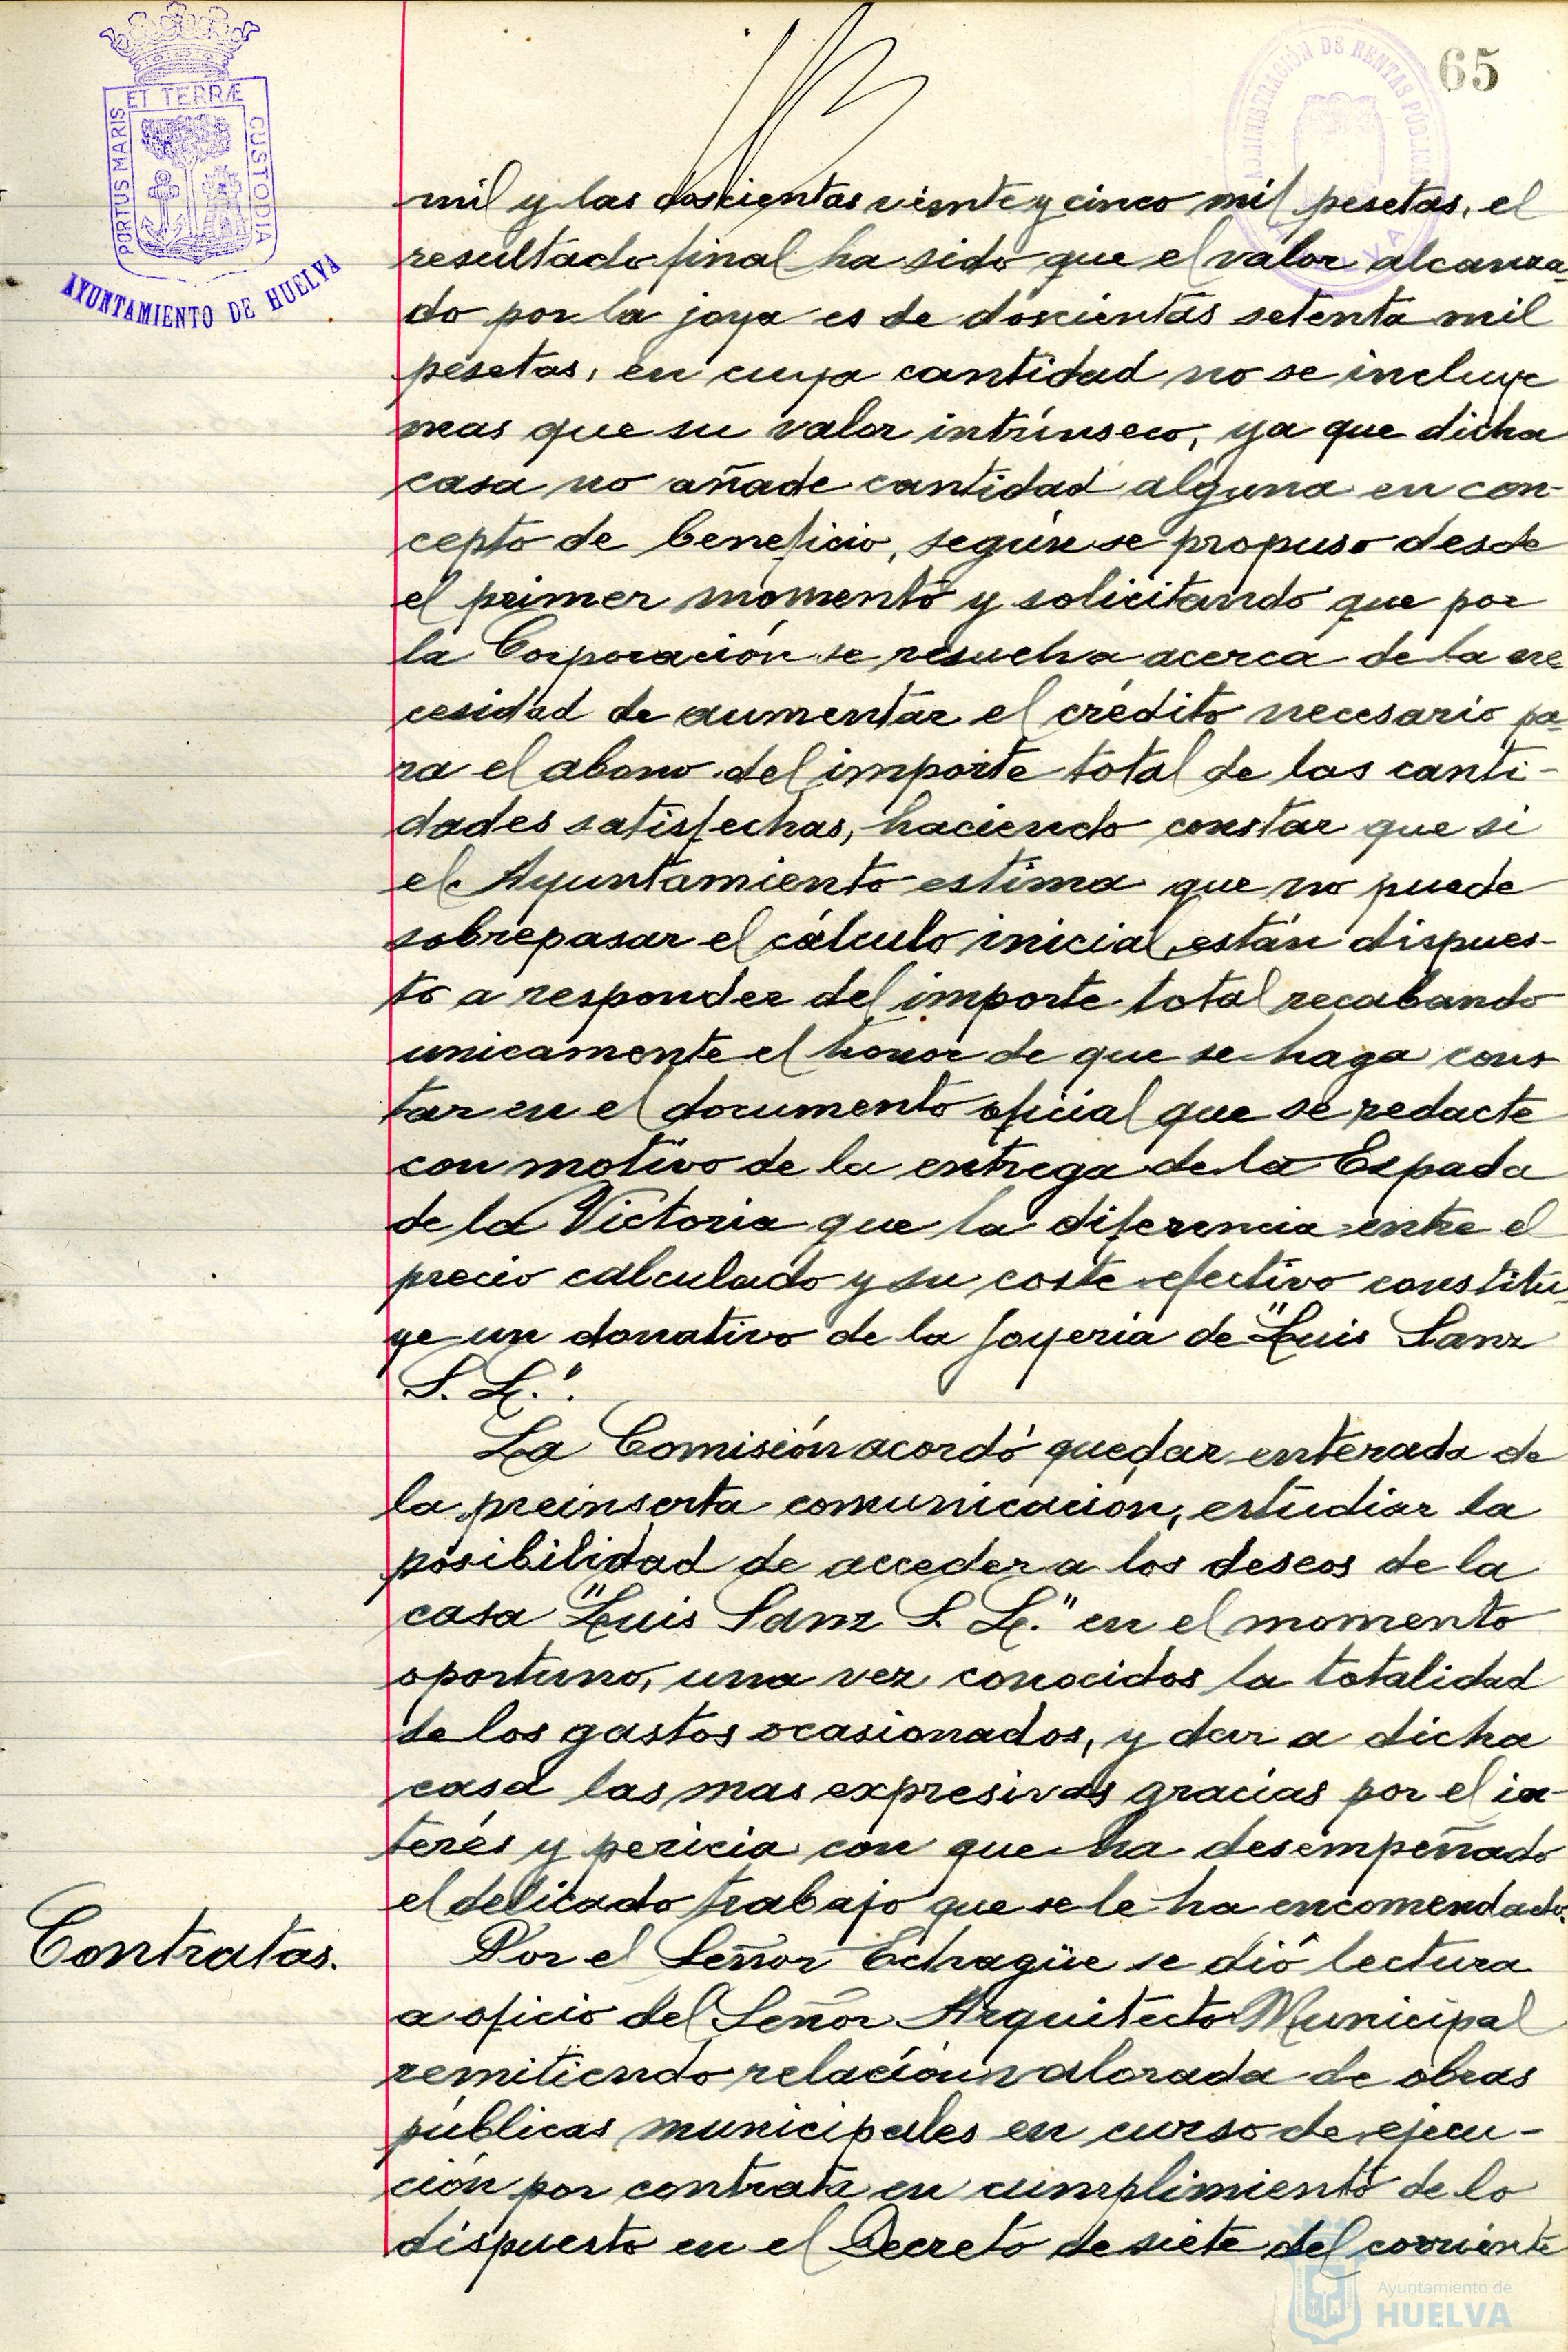 65
ET TERRÆ
PORTUS MARIS
CUSTODIA
AYUNTAMIENTO DE HUELVA
ADMINISTRACIÓN DE RENTAS PÚBLICAS
mil y las doscientas viente y cinco mil pesetas, el
resultado final ha sido que el valor alcanza-
do por la joya es de doscientas setenta mil
pesetas, en cuya cantidad no se incluye
mas que su valor intrínseco, ya que dicha
casa no añade cantidad alguna en con-
cepto de beneficio, según se propuso desde
el primer momento y solicitando que por
la Corporación se resuelva acerca de la ne-
cesidad de aumentar el crédito necesario pa-
ra el abono del importe total de las canti-
dades satisfechas, haciendo constar que si
el Ayuntamiento estima que no puede
sobrepasar el cálculo inicial, están dispues-
to a responder del importe total recabando
unicamente el honor de que se haga cons
tar en el documento oficial que se redacte
con motivo de la entrega de la Espada
de la Victoria que la diferencia entre el
precio calculado y su coste efectivo constitu-
ye un donativo de la Joyeria de "Luis Sanz
S. L.".
La Comisión acordó quedar enterada de
la preinserta comunicación, estudiar la
posibilidad de acceder a los deseos de la
casa "Luis Sanz S. L." en el momento
oportuno, una vez conocidos la totalidad
de los gastos ocasionados, y dar a dicha
casa las mas expresivas gracias por el in-
terés y pericia con que ha desempeñado
el delicado trabajo que se le ha encomendado.
Contratas.
Por el Señor Echagüe se dió lectura
a oficio del Señor Arquitecto Municipal
remitiendo relación valorada de obras
públicas municipales en curso de ejecu-
ción por contrata en cumplimiento de lo
dispuesto en el Decreto de siete del corriente
Ayuntamiento de
HUELVA